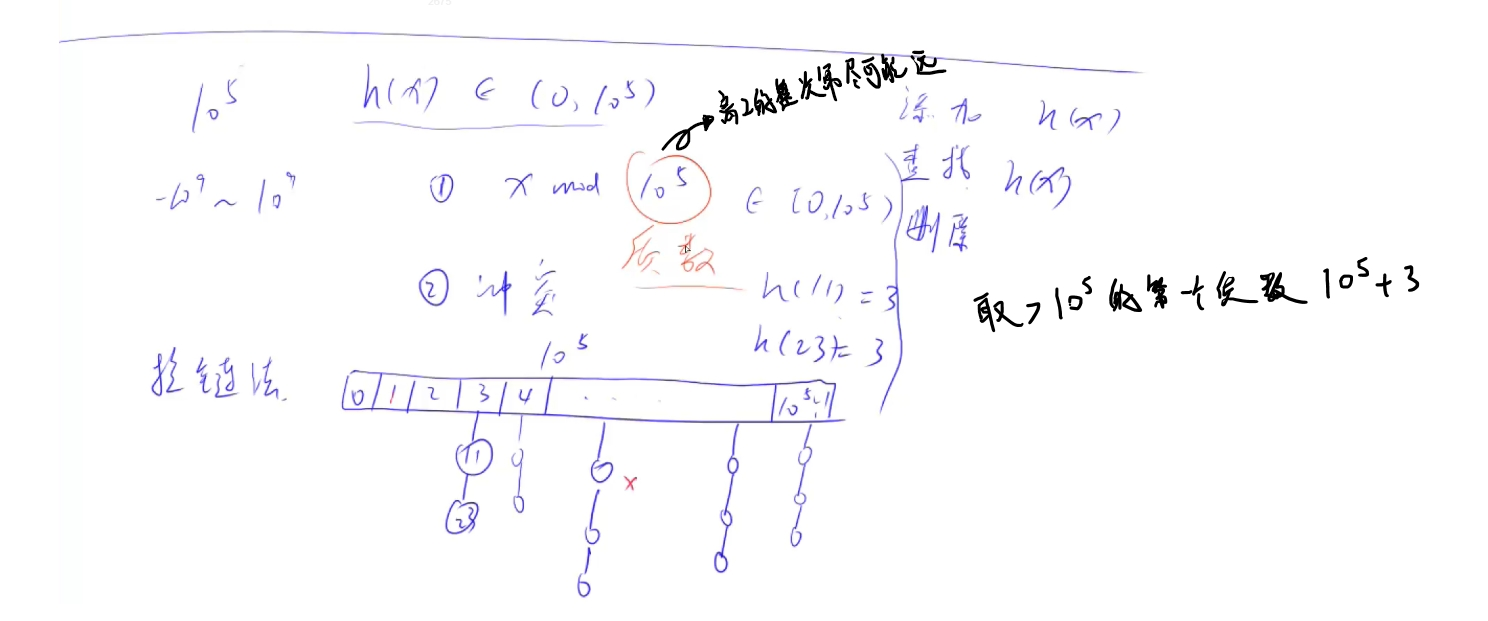 10^5
h(x) ∈ (0, 10^5)
离2的整次幂尽可能远
添加 h(x)
查找 h(x)
删除
-10^9 ~ 10^9
① x mod 10^5 ∈ [0, 10^5)
质数
② 冲突
h(11) = 3
h(23) = 3
取>10^5的第一个质数 10^5+3
10^5
拉链法.
0 1 2 3 4 . . . . 10^5-1
11
23
x